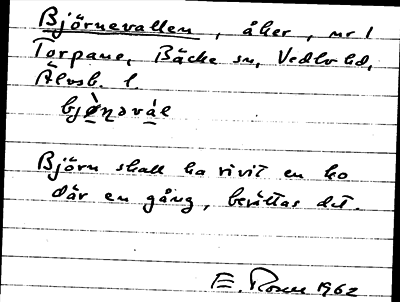 Björnevallen, åker, nr 1
Torpane, Bäcke sn, Vedbo hd,
Älvsb. l.
bjö̀ṇəvál
Björn skall ha rivit en ko
där en gång, berättas det.
E. 1962